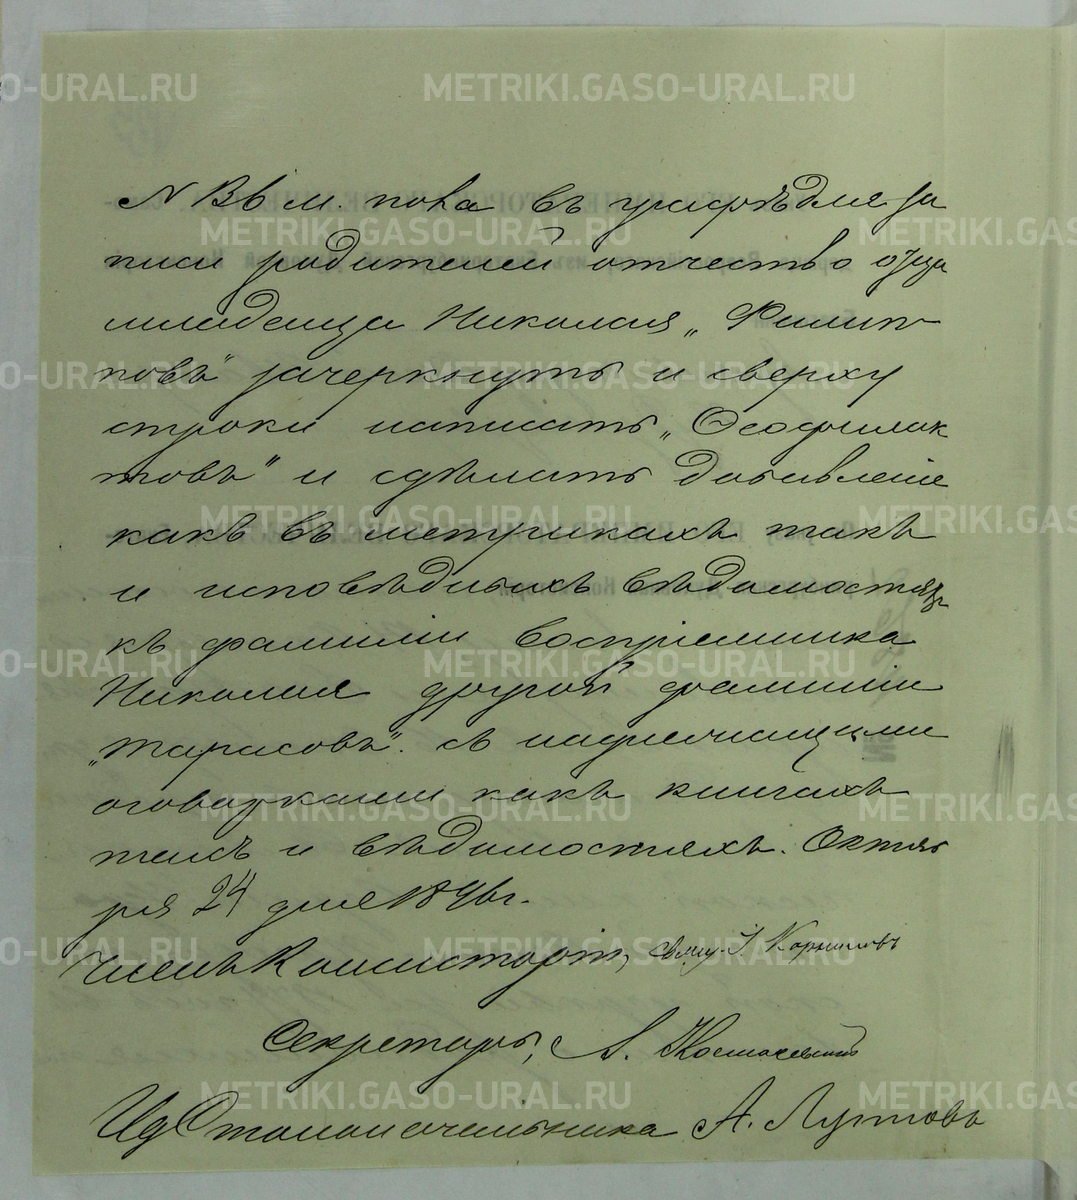 № 136 м. пола въ графѣ для за
писи родителей отчество отца
младенца Николая „Филип-
повъ" зачеркнуть и сверху
строки написать „Ѳеофилак
товъ" и сдѣлать добавленіе
какъ въ метрикахъ такъ
и исповѣдныхъ вѣдомостяхъ
къ фамиліи воспріемника
Николая другой фамиліи
„Тарасовъ". съ надлежащими
оговорками какъ книгахъ
такъ и вѣдомостяхъ. Октяб
ря 24 дня 1896 г.
Членъ Консисторіи, свящ. І. Корниловъ
Секретарь, А.
Ид Столоначальника А. Лутовъ
METRIKI.GASO-URAL.RU